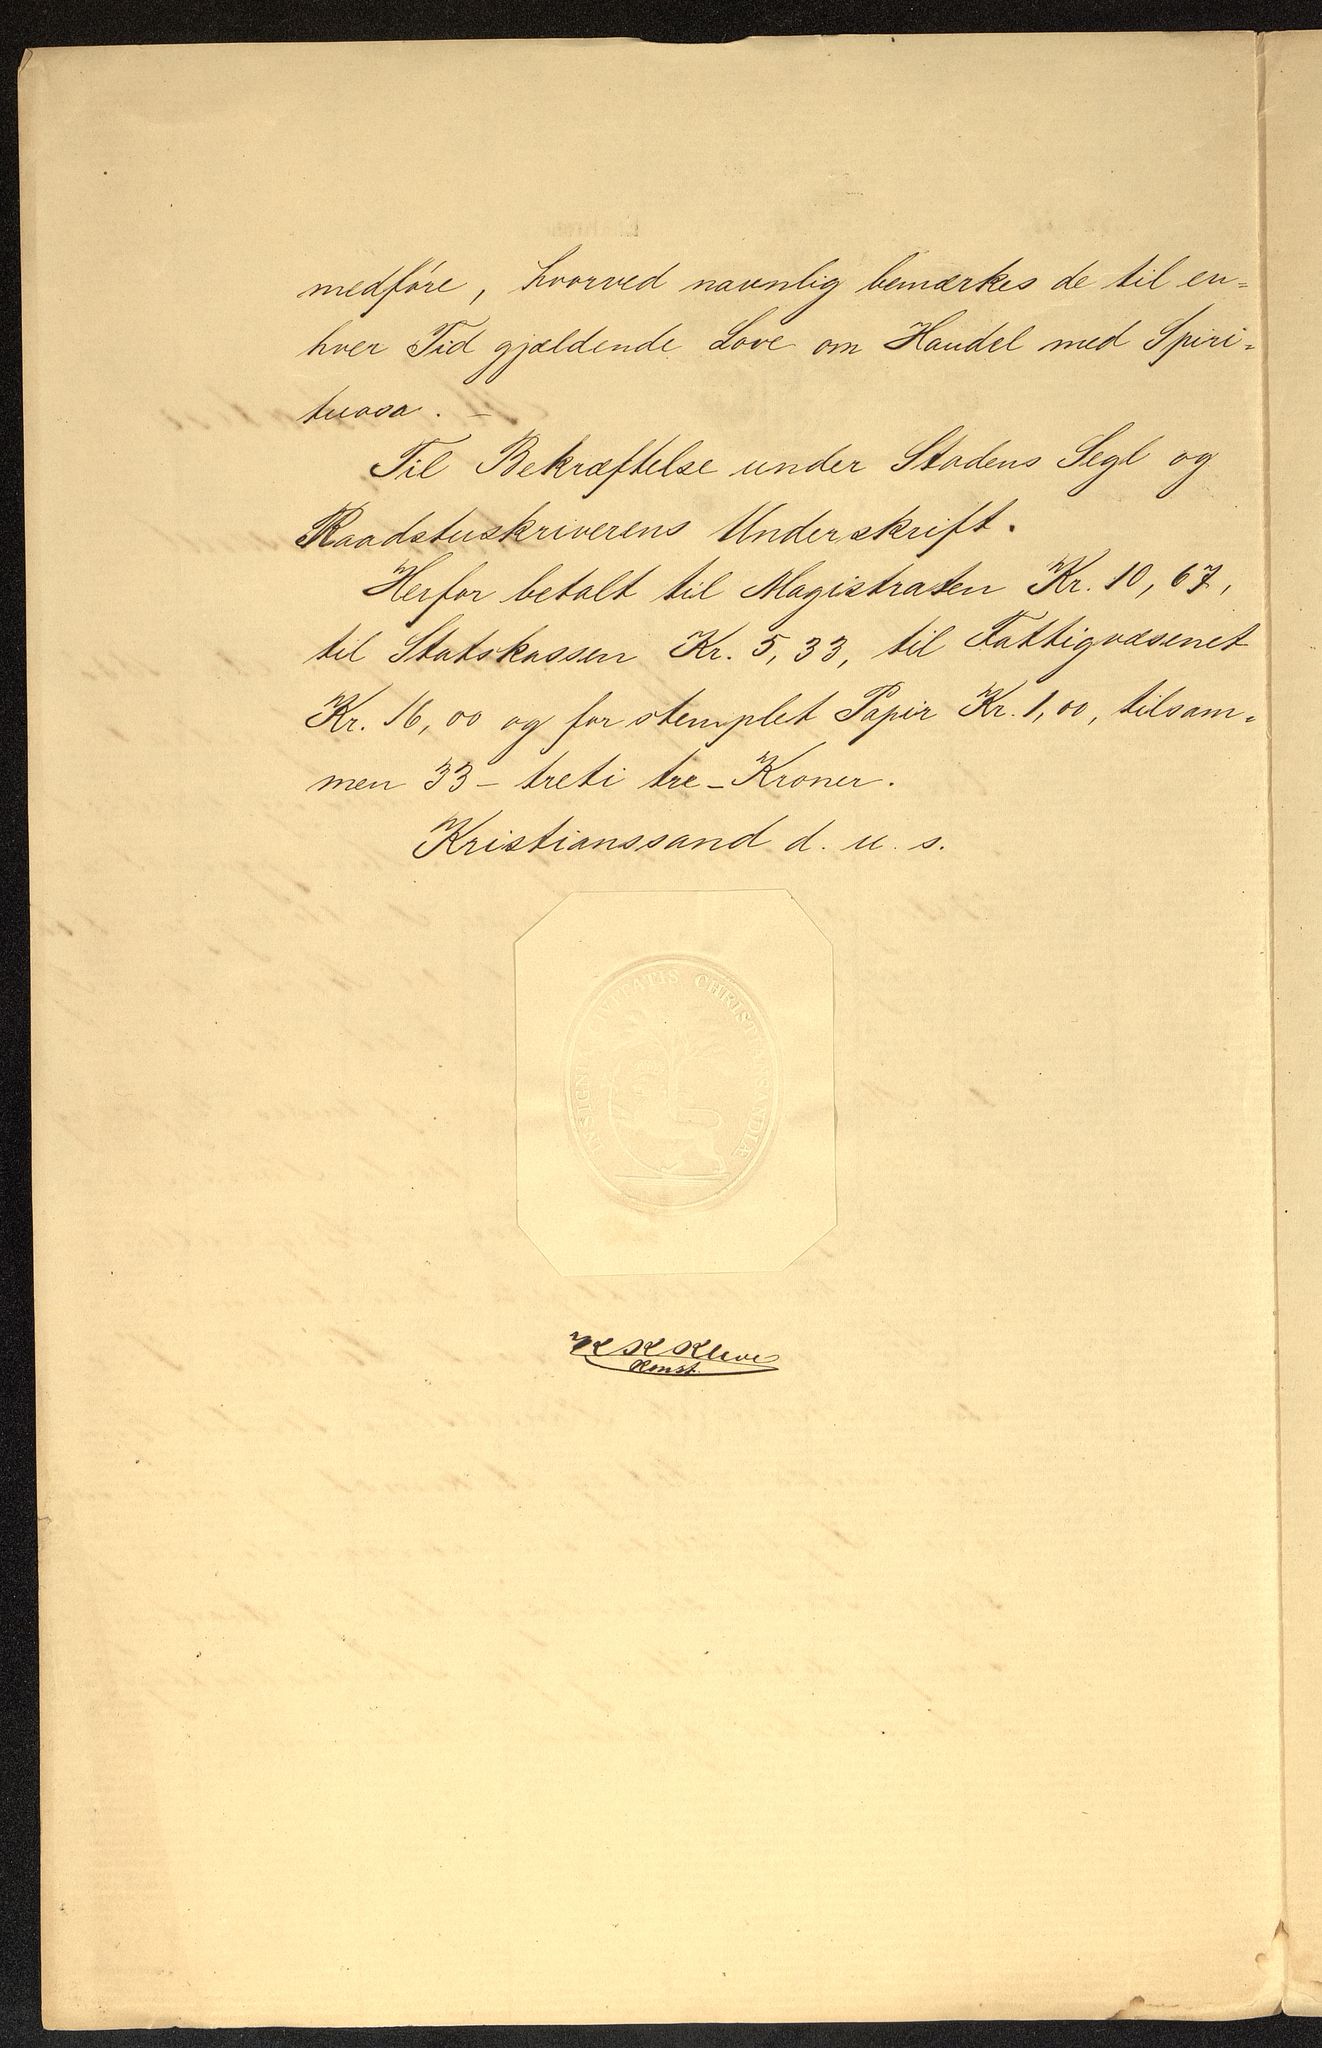 medføre, hvorved navnlig bemærkes de til en=
hver Tid gjældende Love om Handel med Spiri=
tuosa. –
Til Bekræftelse under Stadens Segl og
Raadstuskriverens Underskrift.
Herfor betalt til Magistraten Kr. 10,67,
til Statskassen Kr. 5,33, til Fattigvæsenet
Kr. 16,00 og for stemplet Papir Kr. 1,00, tilsam=
men 33 – treti tre – Kroner.
Kristianssand d. u. s.
INSIGNE CIVITATIS CHRISTIANSANDIÆ
K K Kleve
Konst.